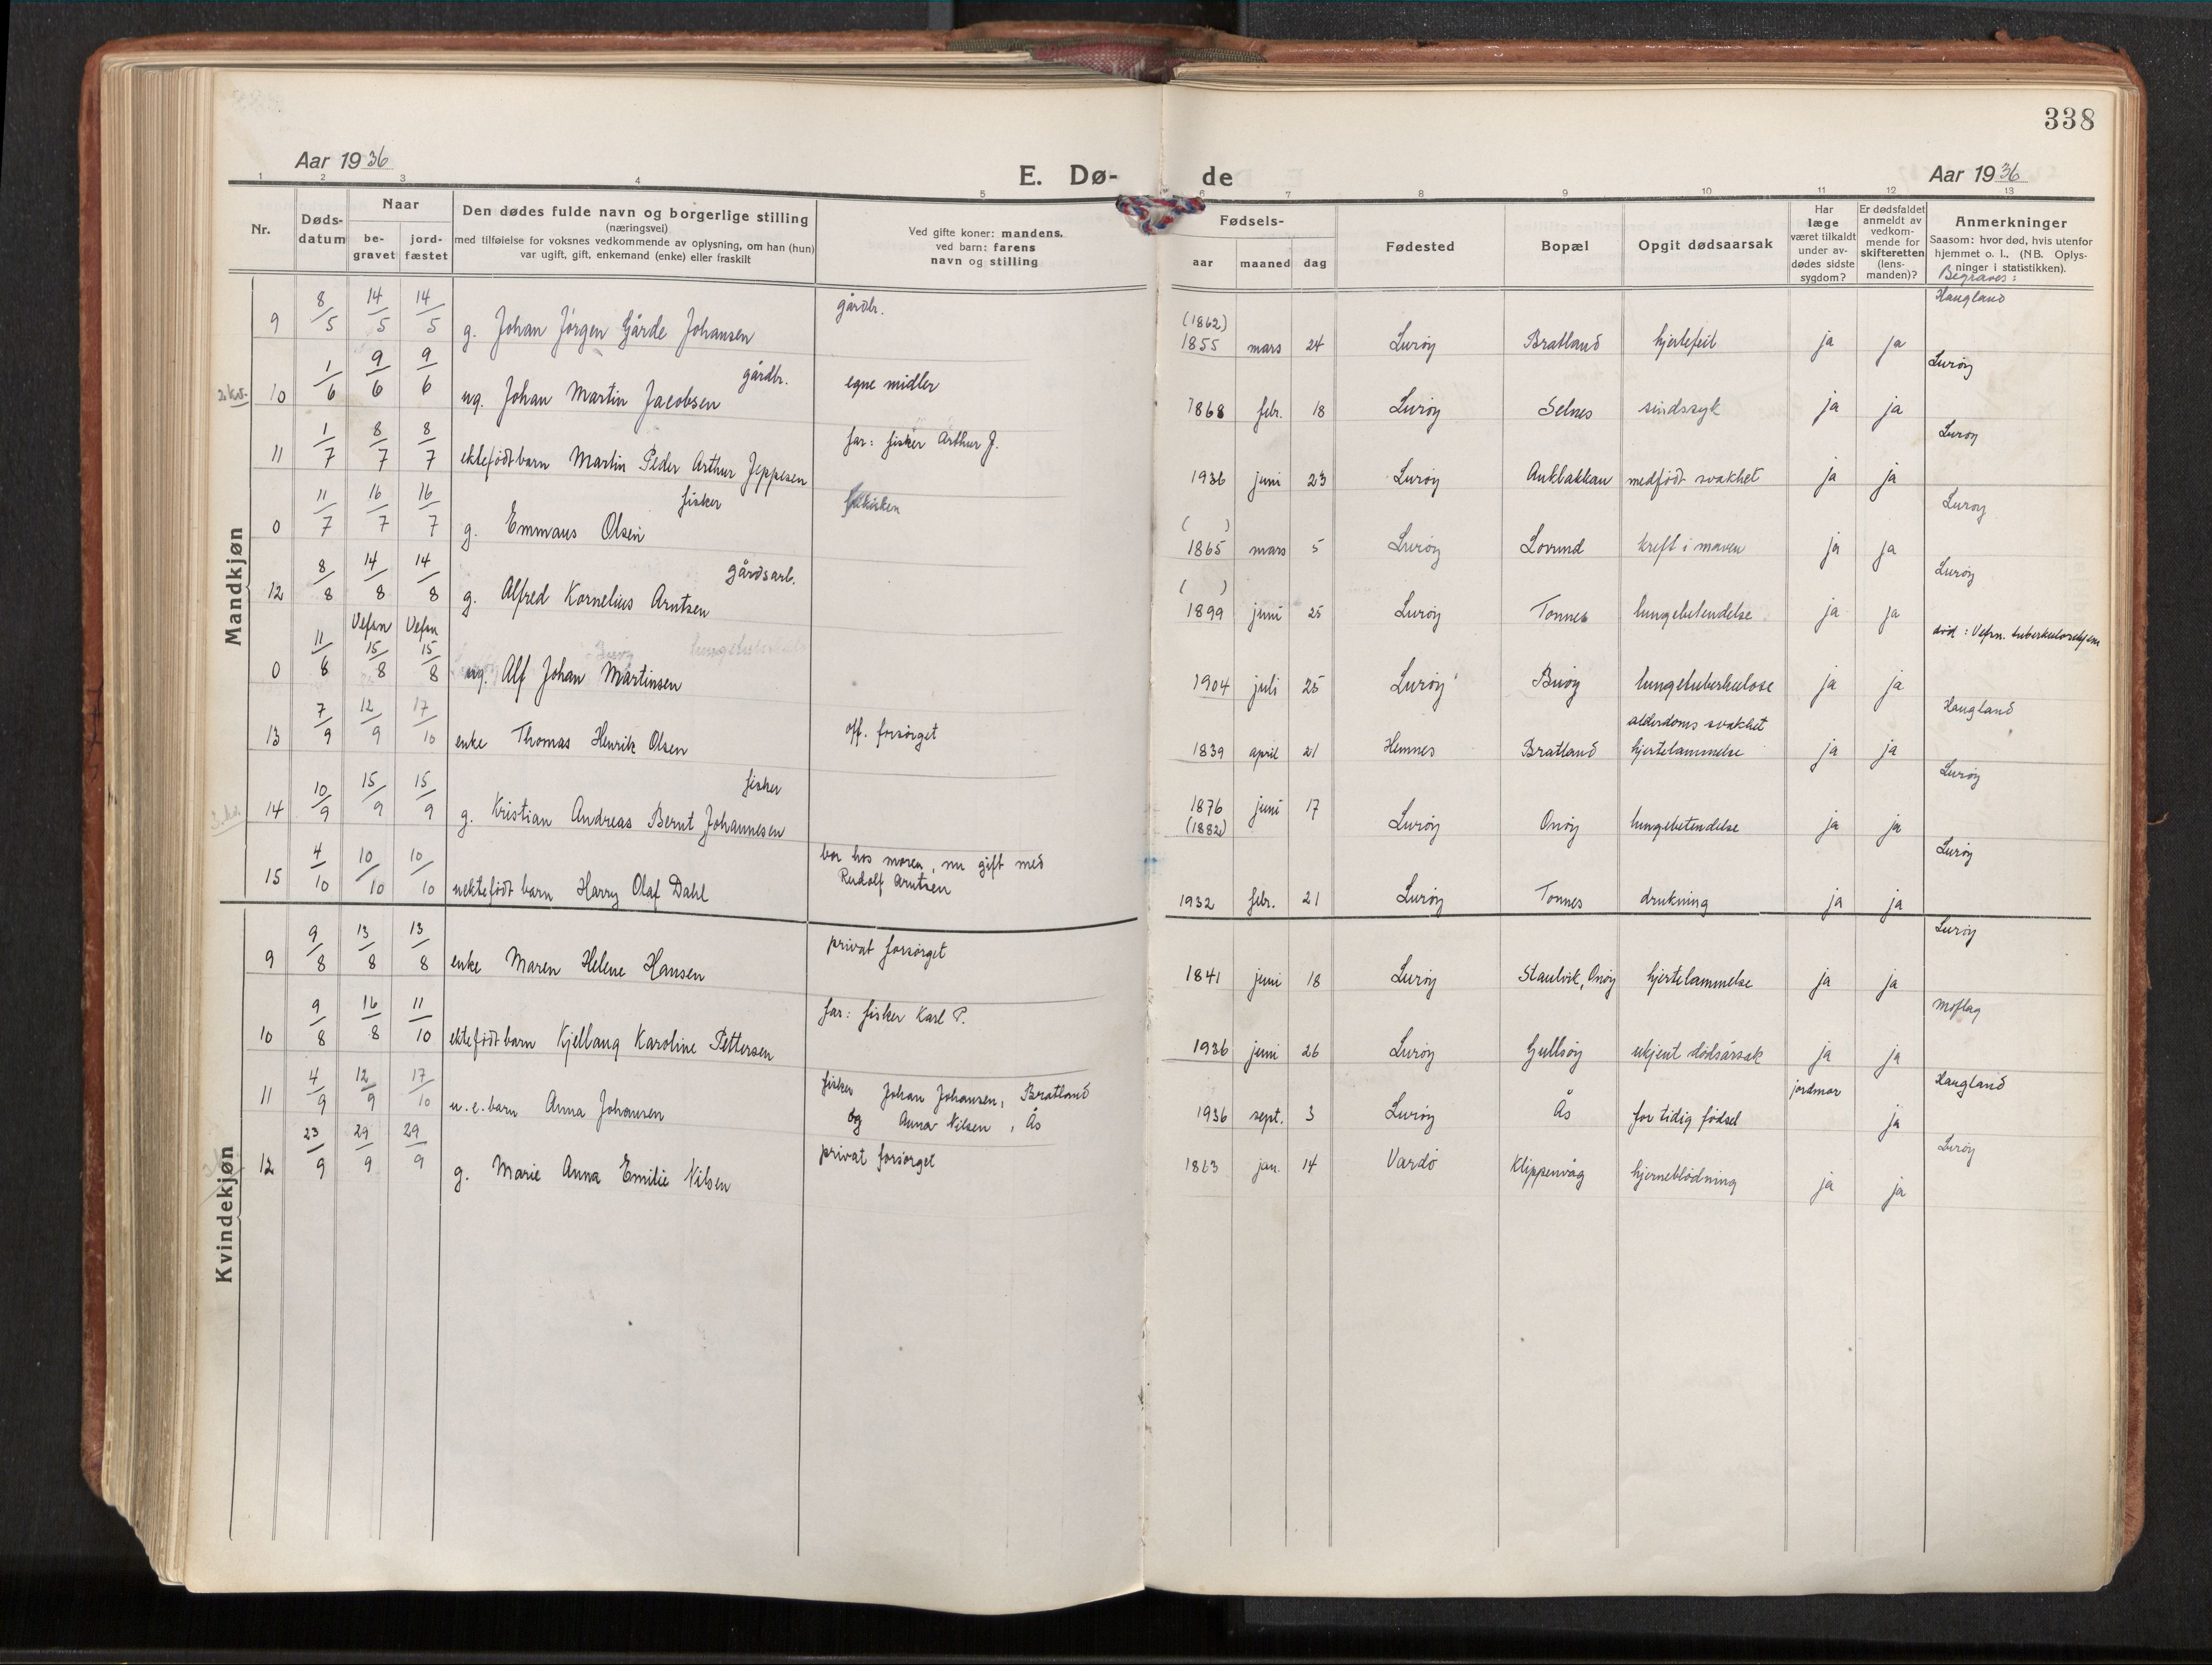 338
Aar 1936
E. Dø-
de
Aar 1936
1 2 3 4 5 6 7 8 9 10 11 12 13
Nr.
Døds-
datum
Naar
be-
gravet
jord-
fæstet
Den dødes fulde navn og borgerlige stilling
(næringsvei)
med tilføielse for voksnes vedkommende av oplysning, om han (hun)
var ugift, gift, enkemand (enke) eller fraskilt
Ved gifte koner: mandens.
ved barn: farens
navn og stilling
Fødsels-
aar maaned dag
Fødested
Bopæl
Opgit dødsaarsak
Har
læge
været tilkaldt
under av-
dødes sidste
sygdom?
Er dødsfaldet
anmeldt av
vedkom-
mende for
skifteretten
(lens-
manden)?
Anmerkninger
Saasom: hvor død, hvis utenfor
hjemmet o. l.. (NB. Oplys-
ninger i statistikken).
Begraves:
Mandkjøn
9 8/5 14/5 14/5 g. Johan Jørgen Gårde Johansen gårdbr. (1862) 1855 mars 24 Lurøy Bratland hjertefeil ja ja Haugland
2. kv. 10 1/6 9/6 9/6 ug. Johan Martin Jacobsen gårdbr. egne midler 1868 febr. 18 Lurøy Selnes sindssyk ja ja Lurøy
11 1/7 8/7 8/7 ektefødt barn Martin Peder Arthur Jeppesen far: fisker Arthur J. 1936 juni 23 Lurøy medfødt svakhet ja ja Lurøy
0 11/7 16/7 16/7 g. Emmaus Olsen fisker frikirken ( ) 1865 mars 5 Lurøy Lovund kreft i maven ja ja Lurøy
12 8/8 14/8 14/8 g. Alfred Kornelius Arntsen gårdsarb. ( ) 1899 juni 25 Lurøy Tonnes lungebetendelse ja ja Lurøy
0 11/8 Vefsn 15/8 Vefsn 15/8 ug. Alf Johan Martinsen 1904 juli 25 Lurøy Buøy lungetuberkulose ja ja død: Vefsn. tuberkulosehjem
13 7/9 12/9 17/10 enke Thomas Henrik Olsen off. forsørget 1839 april 21 Hemnes Bratland alderdoms svakhet hjertelammelse ja ja Haugland
14 10/9 15/9 15/9 g. Kristian Andreas Bernt Johannesen fisker 1876 (1882) juni 17 Lurøy Onøy lungebetendelse ja ja Lurøy
15 4/10 10/10 10/10 uektefødt barn Harry Olaf Dahl bor hos moren, nu gift med Rudolf Arntsen 1932 febr. 21 Lurøy Tonnes drukning ja ja Lurøy
Kvindekjøn
9 9/8 13/8 13/8 enke Maren Helene Hansen privat forsørget 1841 juni 18 Lurøy Staulvik, Onøy hjertelammelse ja ja Lurøy
10 9/8 16/8 11/10 ektefødt barn Kjellaug Karoline Pettersen far: fisker Karl P. 1936 juni 26 Lurøy Gullsøy ukjent dødsårsak ja ja Moflag
11 4/9 12/9 17/10 u.e. barn Anna Johansen fisker Johan Johansen, Bratland og Anna Nilsen, Ås 1936 sept. 3 Lurøy Ås for tidig fødsel jordmor ja Haugland
12 23/9 29/9 29/9 g. Marie Anna Emilie Nilsen privat forsørget 1863 jan. 14 Vardø Klippenvåg hjerneblødning ja ja Lurøy